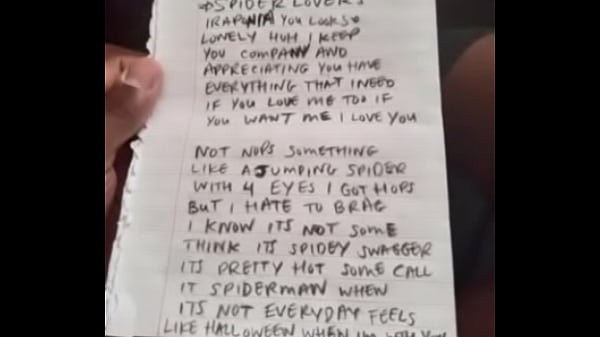 SPIDER LOVERS
IRAPONIA YOU LOOK SO
LONELY HUH I KEEP
YOU COMPANY AND
APPRECIATING YOU HAVE
EVERYTHING THAT I NEED
IF YOU LOVE ME TOO IF
YOU WANT ME I LOVE YOU
NOT NOPS SOMETHING
LIKE A JUMPING SPIDER
WITH 4 EYES I GOT HOPS
BUT I HATE TO BRAG
I KNOW ITS NOT SOME
THINK ITS SPIDEY SWAGGER
ITS PRETTY HOT SOME CALL
IT SPIDERMAN WHEN
ITS NOT EVERYDAY FEELS
LIKE HALLOWEEN WHEN